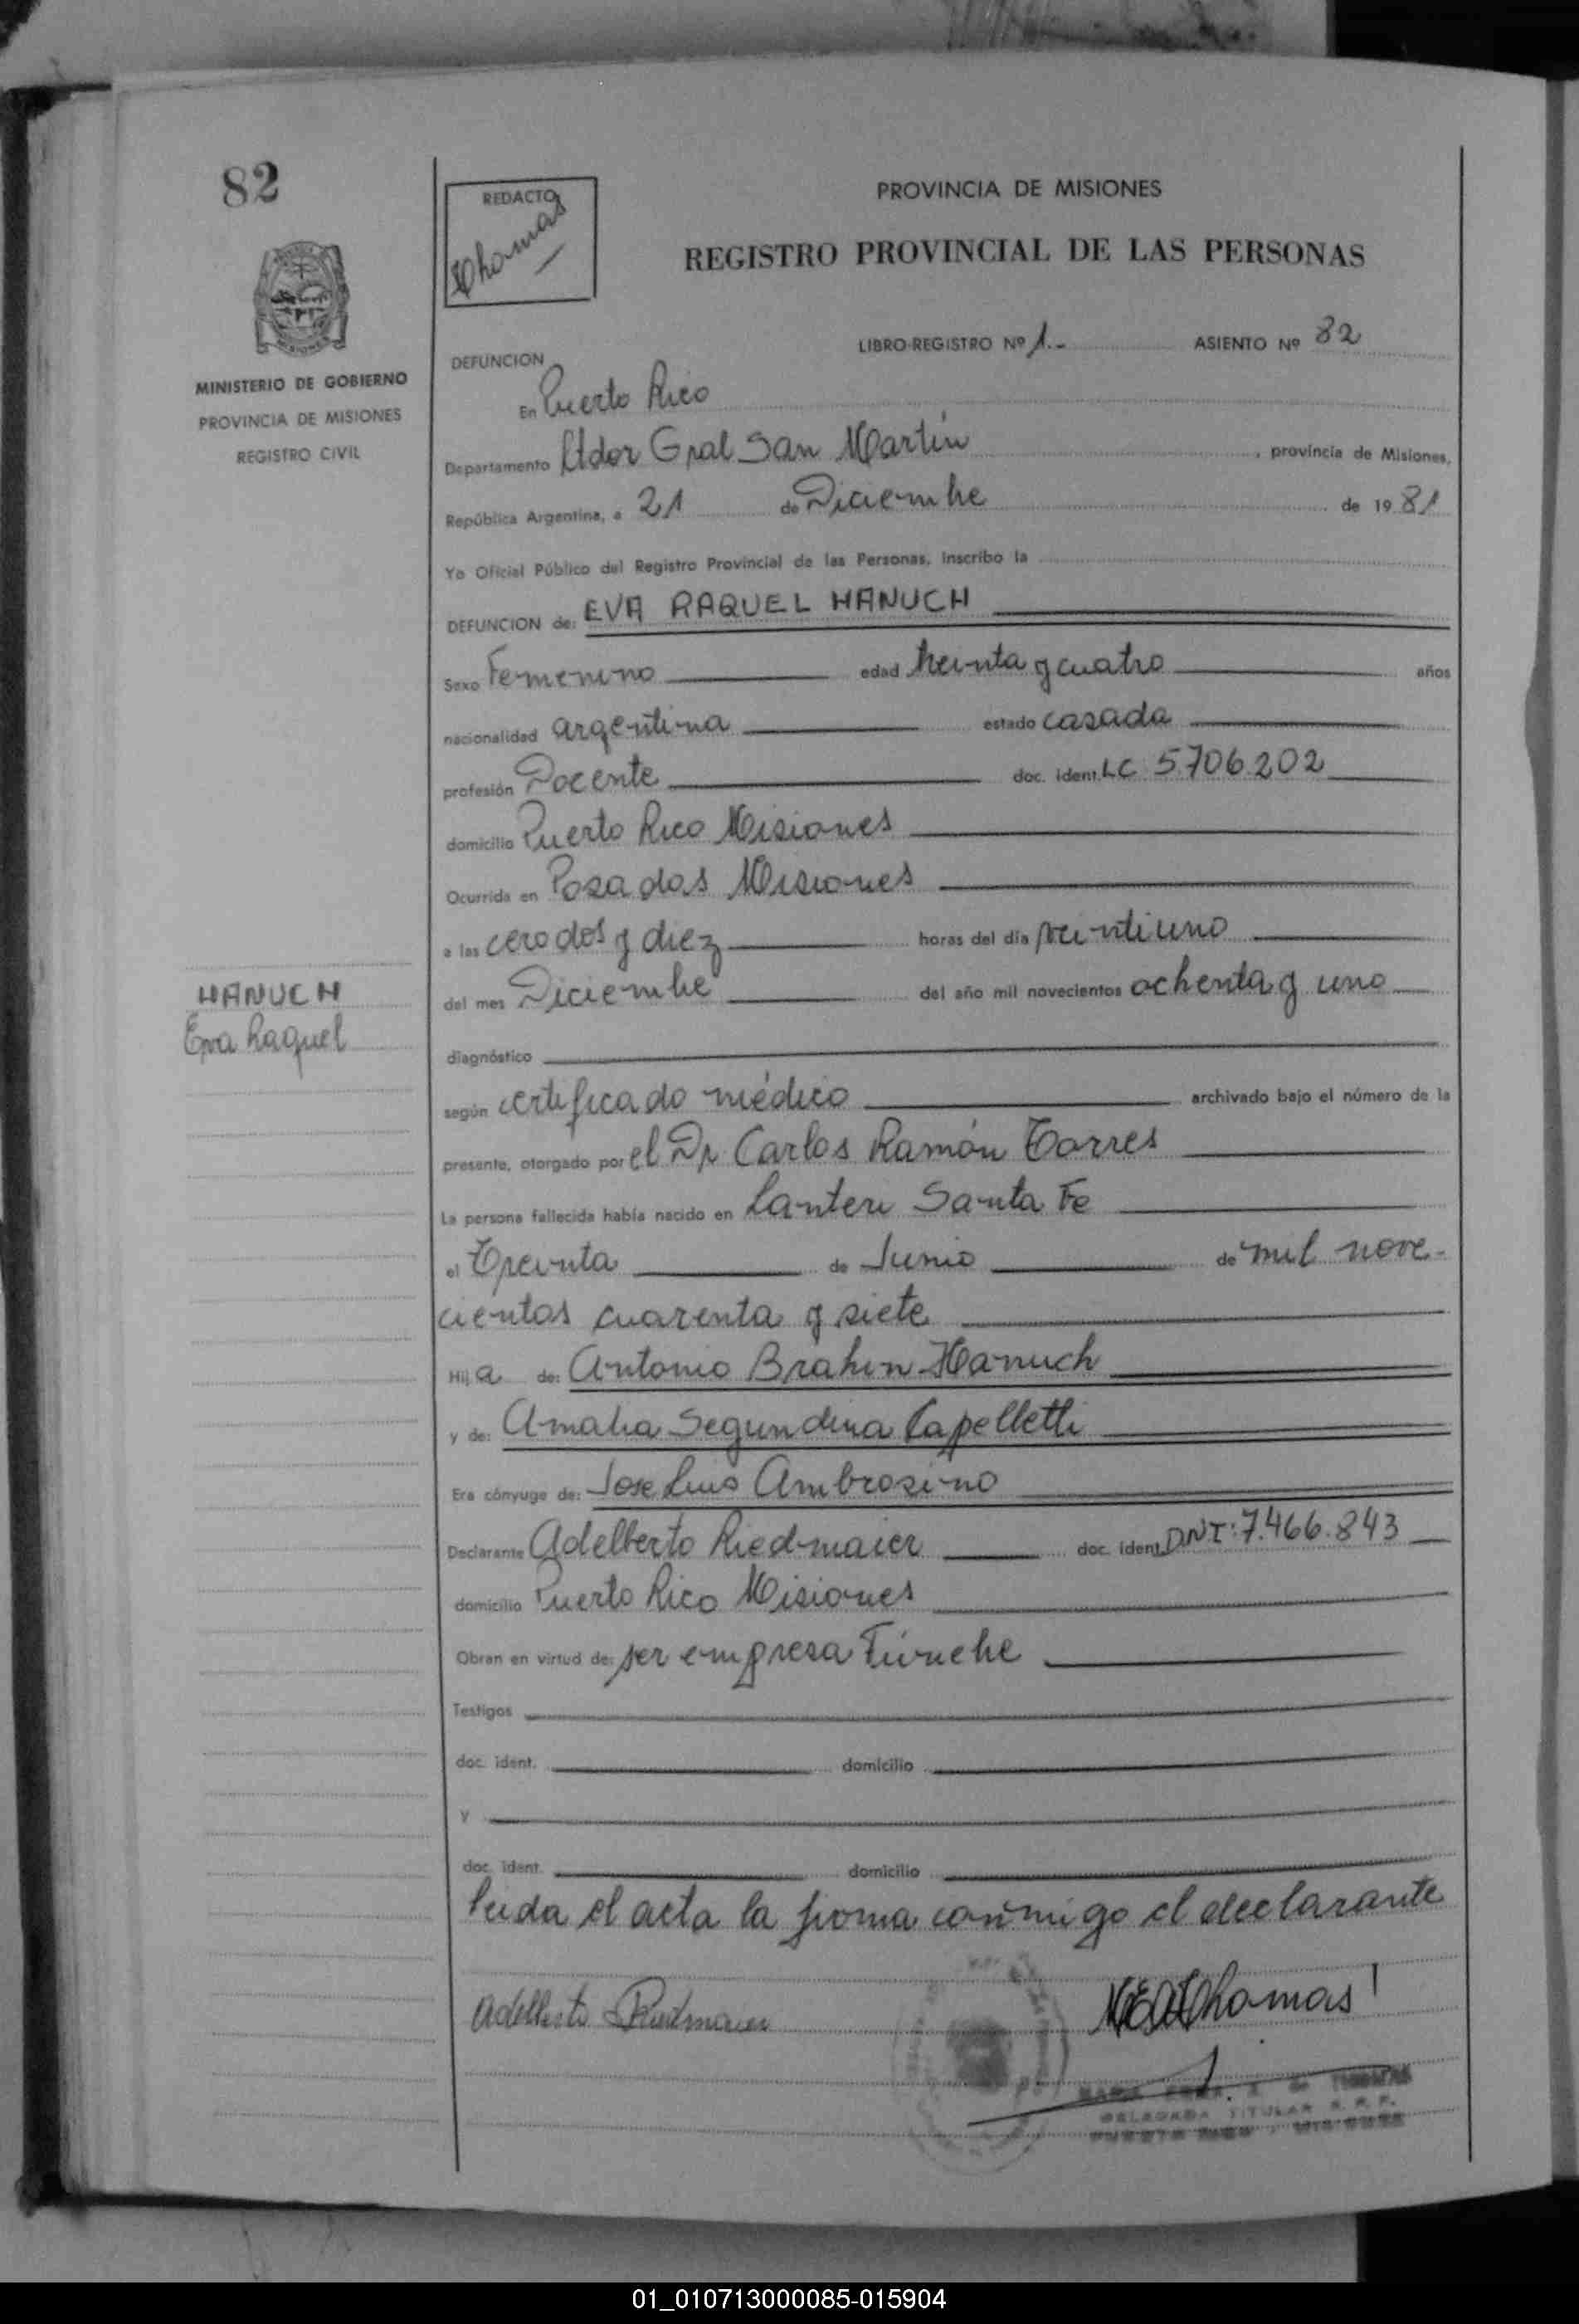 82
MINISTERIO DE GOBIERNO
PROVINCIA DE MISIONES
REGISTRO CIVIL
HANUCH
Eva Raquel
REDACTO
Thomas
PROVINCIA DE MISIONES
REGISTRO PROVINCIAL DE LAS PERSONAS
LIBRO-REGISTRO Nº 1.- ASIENTO Nº 82
DEFUNCION
En Puerto Rico
Departamento Ldor Gral San Martín, provincia de Misiones,
República Argentina, a 21 de Diciembre de 1981
Yo Oficial Público del Registro Provincial de las Personas, inscribo la
DEFUNCION de: EVA RAQUEL HANUCH
Sexo Femenino edad treinta y cuatro años
nacionalidad argentina estado casada
profesión Docente doc. ident. LC 5.706.202
domicilio Puerto Rico Misiones
Ocurrida en Posadas Misiones
a las cero dos y diez horas del día veintiuno
del mes Diciembre del año mil novecientos ochenta y uno
diagnóstico
según certificado médico archivado bajo el número de la
presente, otorgado por el Dr Carlos Ramón Torres
La persona fallecida había nacido en Lanteri Santa Fe
el Treinta de Junio de mil nove-
cientos cuarenta y siete
Hija de: Antonio Brahin Hanuch
y de: Amalia Segundina Capelletti
Era cónyuge de: Jose Luis Ambrosino
Declarante Adelberto Riedmaier doc. ident. DNI: 7.466.843
domicilio Puerto Rico Misiones
Obran en virtud de: ser empresa Fúnebre
Testigos
doc. ident. domicilio
y
doc. ident. domicilio
leida el acta la firma conmigo el declarante
Adelberto Riedmaier Thomas
DELEGADA TITULAR R. P. P.
PUERTO RICO - MISIONES
01_010713000085-015904